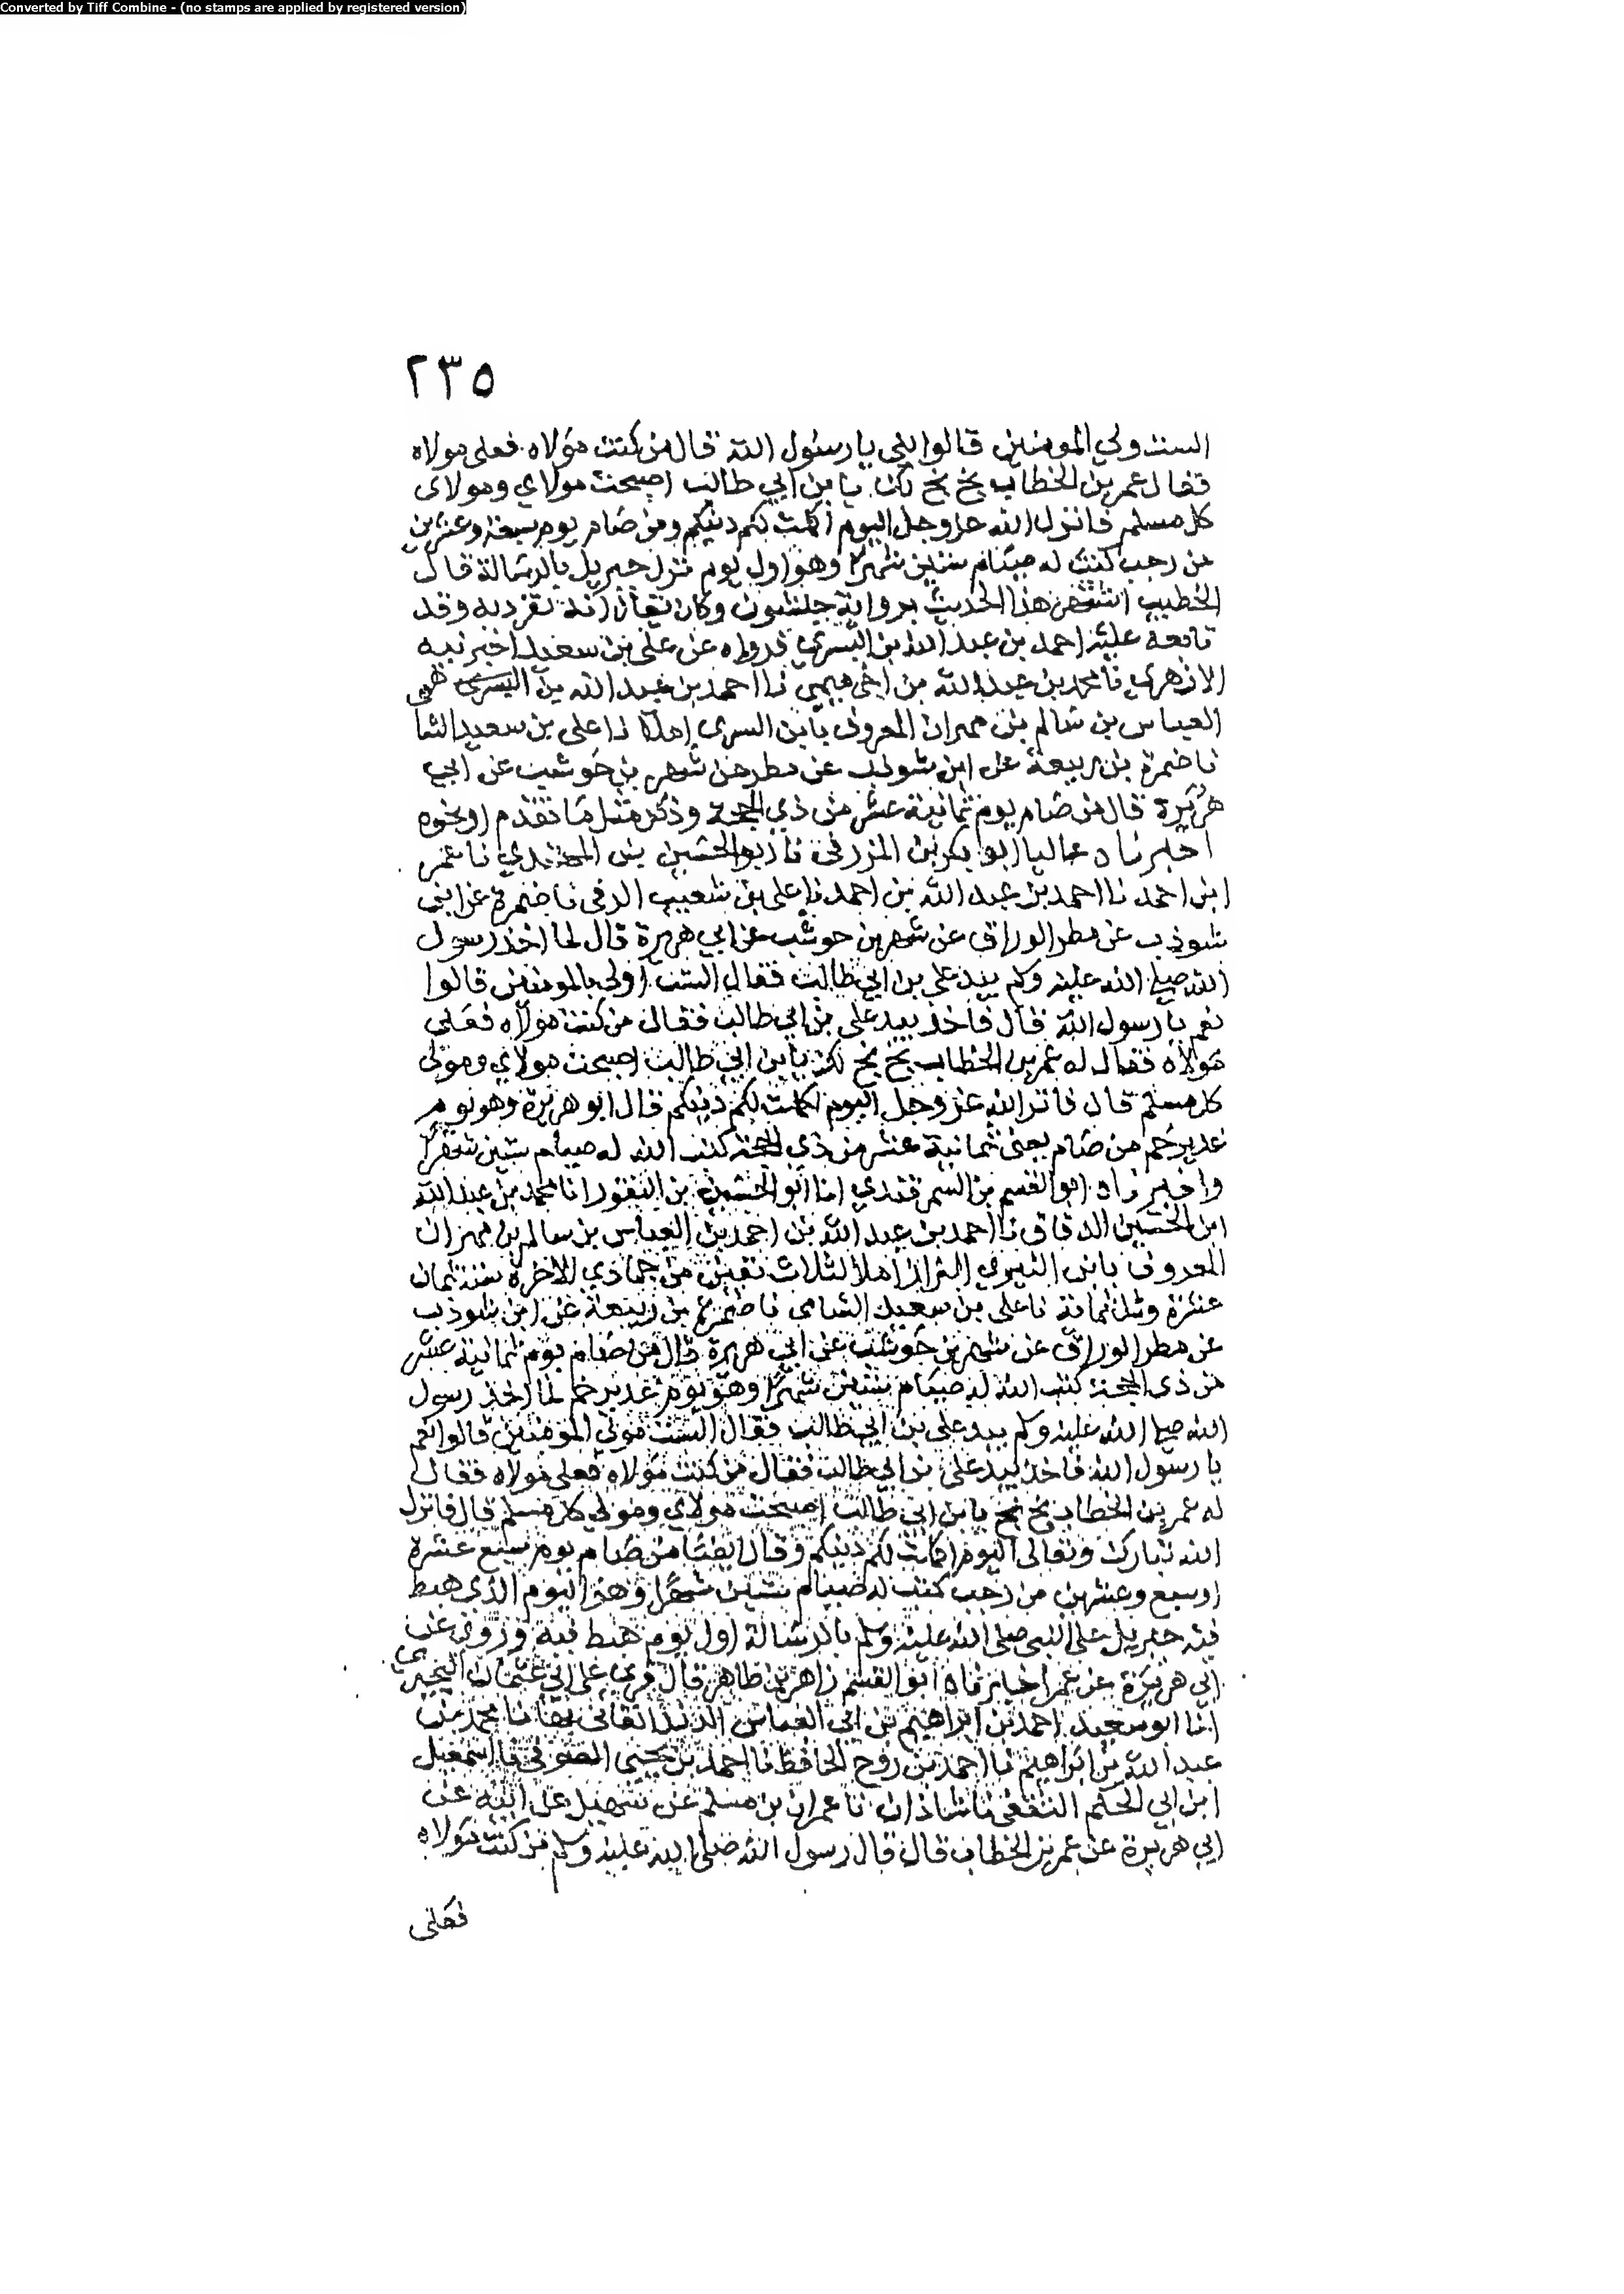 Converted by Tiff Combine - (no stamps are applied by registered version)
٢٣٥
الست ولي المومنين قالوا بلى يا رسول الله قال من كنت مولاه فعلي مولاه
فقال عمر بن الخطاب بخ بخ لك يا بن ابي طالب اصبحت مولاي ومولاى
كل مسلم فانزل الله عز وجل اليوم اكملت لكم دينكم ومن صام يوم سبعة وعشرين
من رجب كتب له صيام ستين شهرا وهو اول يوم نزل جبريل بالرسالة قال
الخطيب اشتهر هذا الحديث برواية حبشون وكان يقال انه تفرد به وقد
تابعه عليه احمد بن عبد الله بن النيري فرواه عن علي بن سعيد اخبرنيه
الازهري نا محمد بن عبد الله بن اخي ميمي نا احمد بن عبد الله بن
العباس بن سالم بن مهران المعروف بابن السرى املاء نا على بن سعيد الشا
نا ضمرة بن ربيعة عن ابن شوذب عن مطر عن شهر بن حوشب عن ابي
هريرة قال من صام يوم ثمانية عشر من ذي الحجة وذكر مثل ما تقدم او نحوه
اخبرناه عاليا ابو بكر بن المزرفى نا ابو الحسين بن المهتدي نا عمر
ابن احمد نا احمد بن عبد الله بن احمد نا على بن شعيب الرقى نا ضمرة عن ابن
شوذب عن مطر الوراق عن شهر بن حوشب عن ابي هريرة قال لما اخذ رسول
الله صلى الله عليه وسلم بيد علي بن ابي طالب فقال الست اولى بالمومنين قالوا
نعم يا رسول الله قال فاخذ بيد على بن ابي طالب فقال من كنت مولاه فعلي
مولاه فقال له عمر بن الخطاب بخ بخ لك يا بن ابي طالب اصبحت مولاي ومولى
كل مسلم قال فانزل الله عز وجل اليوم اكملت لكم دينكم قال ابو هريرة وهو يوم
غدير خم من صام يعنى ثمانية عشر من ذي الحجة كتب الله له صيام ستين شهرا
واخبرناه ابو القسم بن السمرقندي انا ابو الحسين بن النقور انا محمد بن عبد الله
ابن الحسين الدقاق نا احمد بن عبد الله بن احمد بن العباس بن سالم بن مهران
المعروف بابن النيري البزاز املاء لثلاث بقين من جمادي الاخرة سنة ثمان
عشرة وثلثمائة نا على بن سعيد الشامى نا ضمرة بن ربيعة عن ابن شوذب
عن مطر الوراق عن شهر بن حوشب عن ابي هريرة قال من صام يوم ثمانية عشر
من ذى الحجة كتب الله له صيام ستين شهرا وهو يوم غدير خم لما اخذ رسول
الله صلى الله عليه وسلم بيد على بن ابي طالب فقال الست مولى المومنين قالوا نعم
يا رسول الله فاخذ بيد على بن ابي طالب فقال من كنت مولاه فعلي مولاه فقال
له عمر بن الخطاب بخ بخ يا بن ابي طالب اصبحت مولاي ومولى كل مسلم قال فانزل
الله تبارك وتعالى اليوم اكملت لكم دينكم وقال ايضا من صام يوم سبع عشرة
او سبع وعشرين من رجب كتب له صيام ستين شهرا وهو اليوم الذى هبط
فيه جبريل على النبي صلى الله عليه وسلم بالرسالة اول يوم هبط فيه وروي عن
ابي هريرة عن عمر اخبرناه ابو القسم زاهر بن طاهر قال قرى على ابي عثمان البحيري
انا ابو سعيد احمد بن ابراهيم بن ابي العباس نا محمد بن
عبد الله بن ابراهيم نا احمد بن روح الحافظ نا احمد بن يحيى الصوفي نا اسمعيل
ابن ابي الحكم الثقفى نا شاذان نا عمران بن مسلم عن سهيل عن ابيه عن
ابي هريرة عن عمر بن الخطاب قال قال رسول الله صلى الله عليه وسلم من كنت مولاه
فعلى